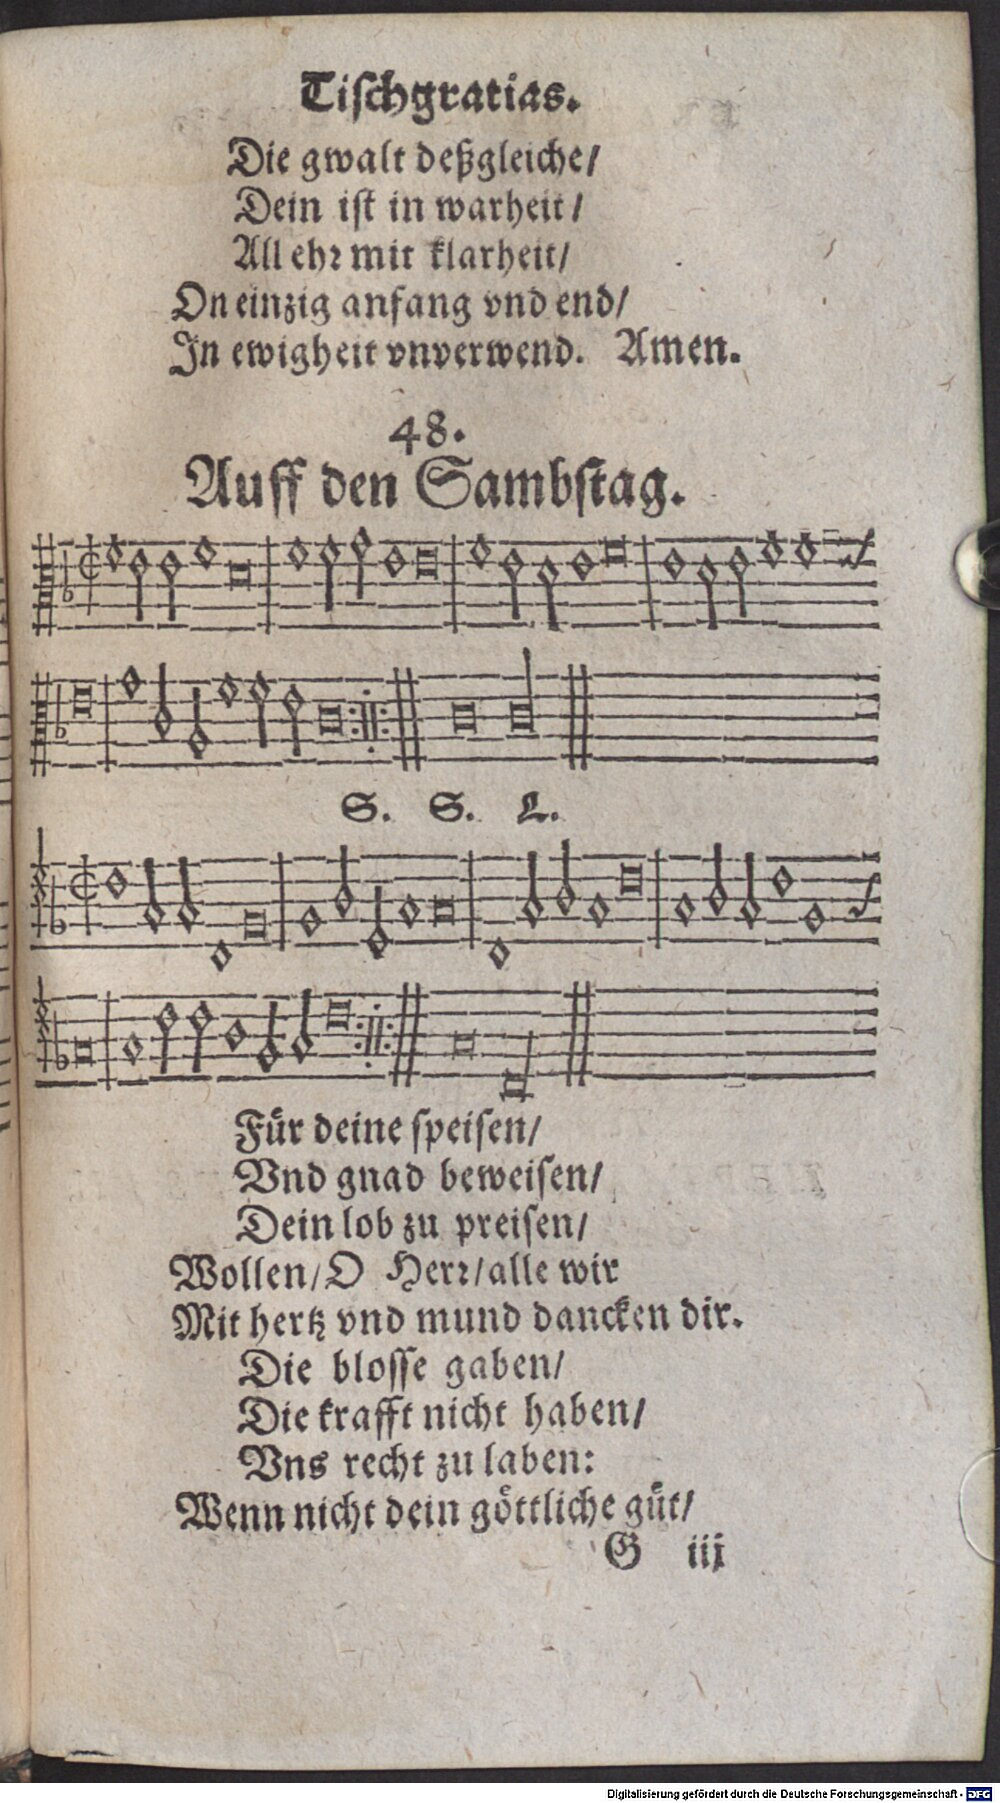 Tiſchgratias.
Die gwalt deßgleiche/
Dein iſt in warheit/
All ehꝛ mit klarheit/
On einzig anfang vnd end/
In ewigheit vnverwend. Amen.
48.
Auff den Sambſtag.
S. S. L.
Fuͤr deine ſpeiſen/
Vnd gnad beweiſen/
Dein lob zu preiſen/
Wollen/O Herꝛ/alle wir
Mit hertz vnd mund dancken dir.
Die bloſſe gaben/
Die krafft nicht haben/
Vns recht zu laben:
Wenn nicht dein goͤttliche guͤt/
G iij
Digitalisierung gefördert durch die Deutsche Forschungsgemeinschaft - DFG